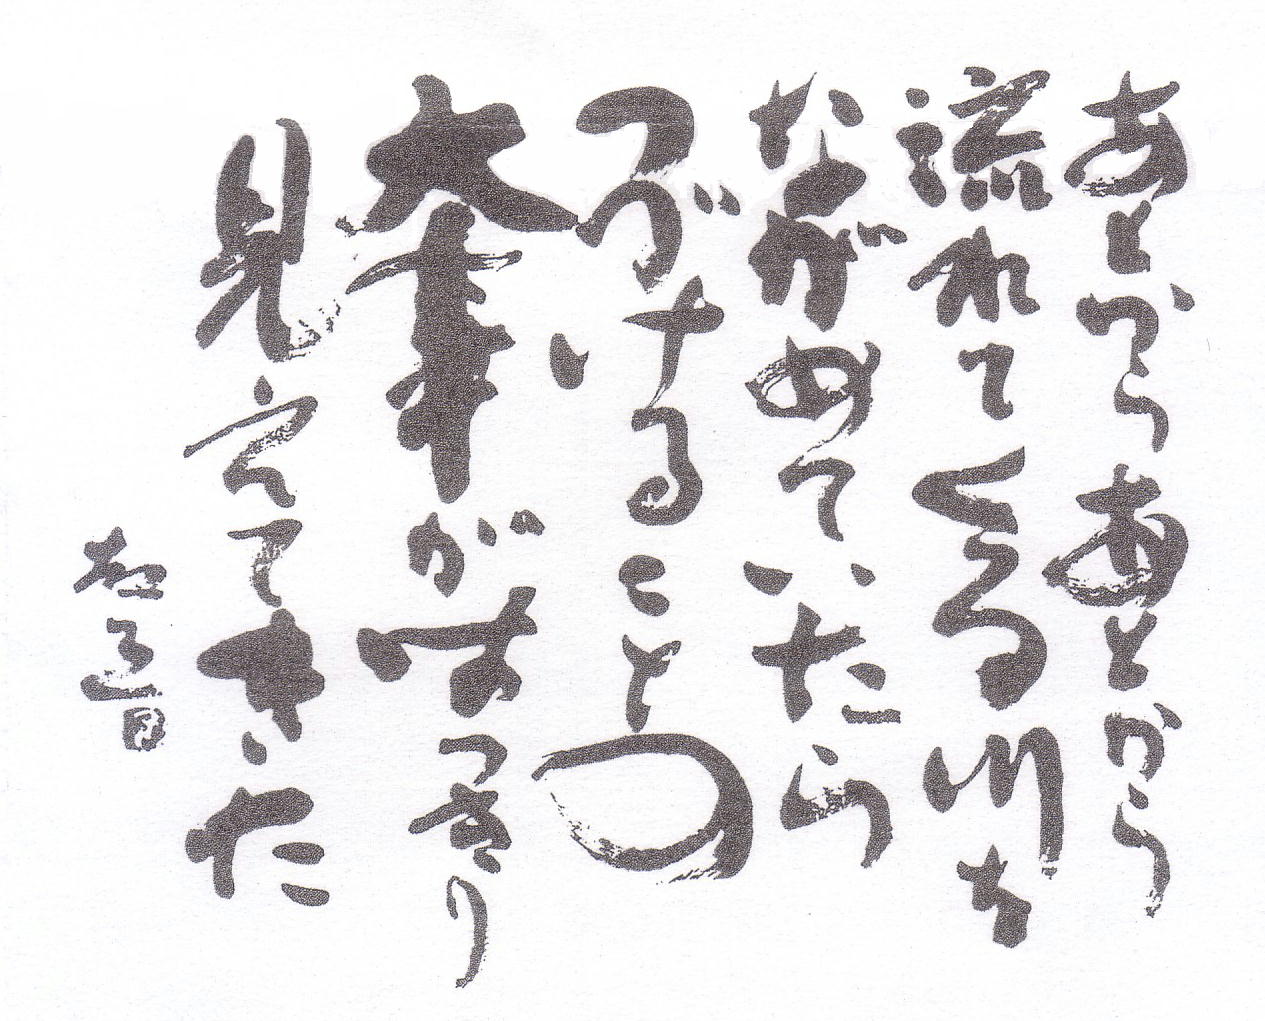 あとからあとから
流れてくる川を
ながめていたら
つづけることの
大事がはっきり
見えてきた